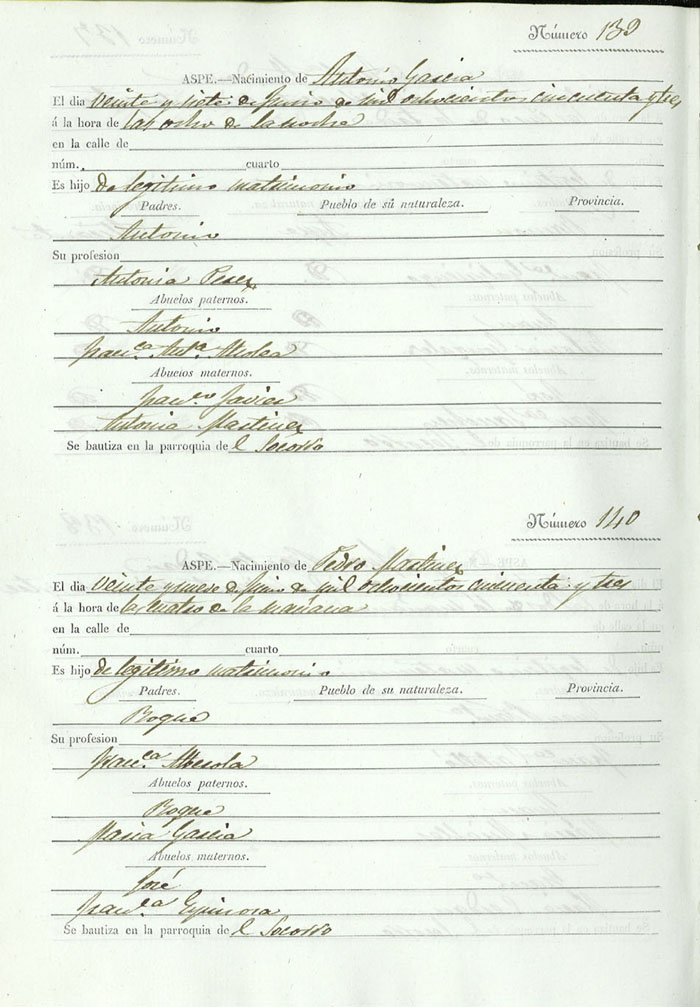 Número 139
ASPE.—Nacimiento de Antonio Garcia
El dia veinte y siete de Junio de mil ochocientos cincuenta y tres
á la hora de las ocho de la noche
en la calle de
núm. cuarto
Es hijo de legitimo matrimonio
Padres. Pueblo de su naturaleza. Provincia.
Antonio
Su profesion
Antonia Perez
Abuelos paternos.
Antonio
Fran.ca Ant.a Molla
Abuelos maternos.
Fran.co Javier
Antonia Martinez
Se bautiza en la parroquia de El Socorro
Número 140
ASPE.—Nacimiento de Pedro Martinez
El dia veinte y nueve de Junio de mil ochocientos cincuenta y tres
á la hora de las cuatro de la mañana
en la calle de
núm. cuarto
Es hijo de legitimo matrimonio
Padres. Pueblo de su naturaleza. Provincia.
Roque
Su profesion
Fran.ca
Abuelos paternos.
Roque
Maria Garcia
Abuelos maternos.
José
Fran.ca Espinosa
Se bautiza en la parroquia de El Socorro